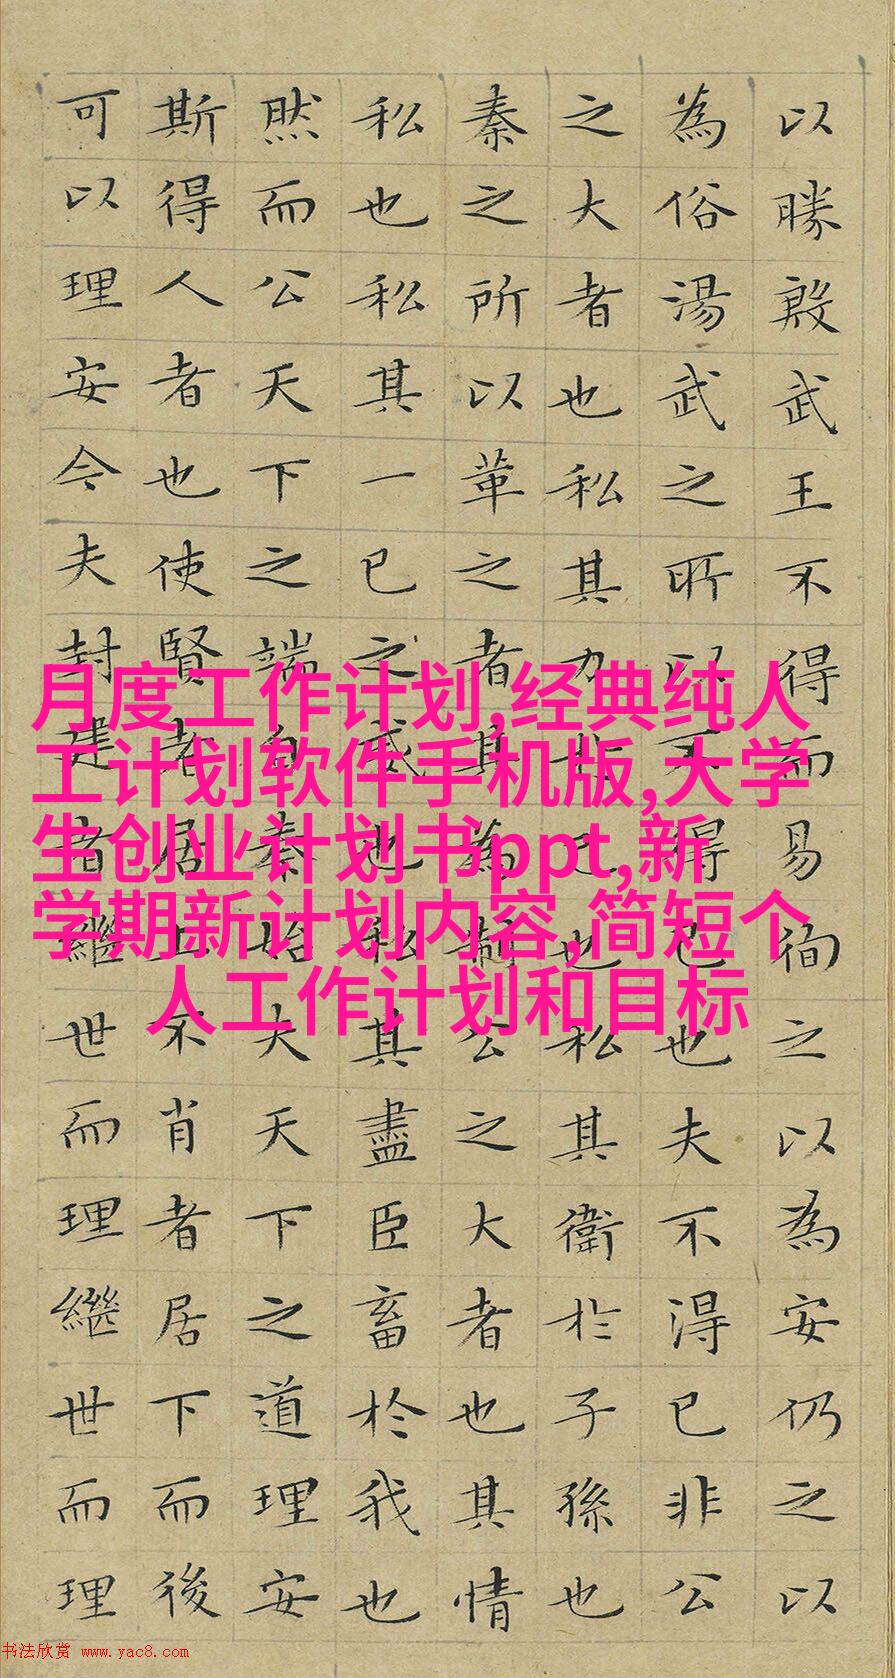 以勝殷武王不得而易徇之以為安仍之以
為俗湯武之所以不得已也夫不得已非公
之大者也私其力於己也私其衛於子孫也
秦之所以革之者其為制公之大者也其情
私也私其一己之威也私其盡臣畜於我也
然而公天下之端自秦始夫天下之道理安
斯得人者也使賢者居上不肖者居下而後
可以理安今夫封建者繼世而理繼世而理
月度工作计划,经典纯人
工计划软件手机版,大学
生创业计划书ppt,新
学期新计划内容,简短个
人工作计划和目标
书法欣赏 www.yac8.com